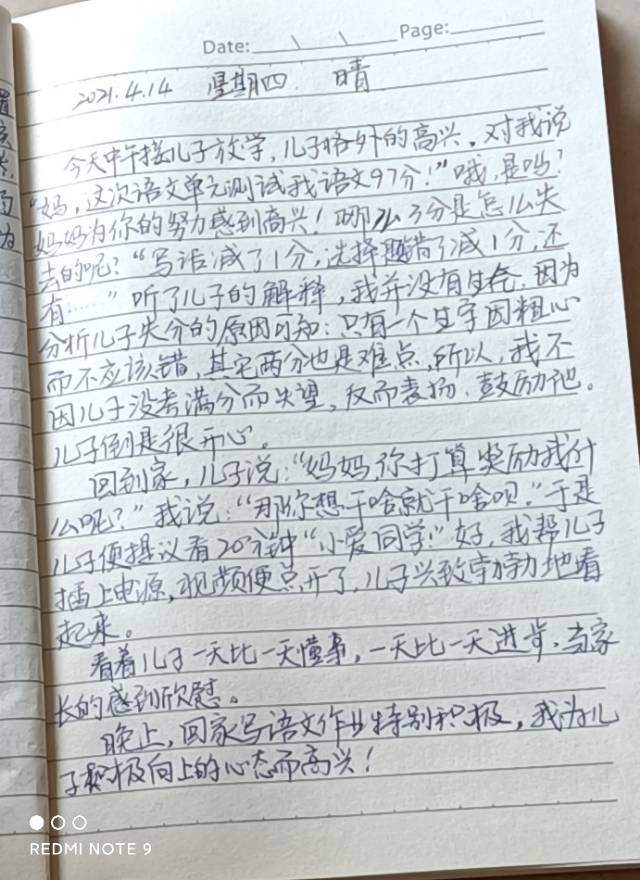 Date: \ \ Page:
2021.4.14 星期四. 晴
今天中午接儿子放学,儿子格外的高兴,对我说
"妈,这次语文单元测试我语文97分!"哦,是吗?
妈妈为你的努力感到高兴!那么3分是怎么失
去的呢?"写话减了1分,选择题错了减1分,还
有……"听了儿子的解释,我并没有生气.因为
分析儿子失分的原因可知:只有一个生字因粗心
而不应该错,其它两分也是难点,所以,我不
因儿子没考满分而失望,反而表扬.鼓励他。
儿子倒是很开心。
回到家,儿子说:"妈妈,你打算奖励我什
么呢?"我说:"那你想干啥就干啥呗."于是
儿子便提议看20分钟"小爱同学!"好,我帮儿子
插上电源,视频便点开了,儿子兴致勃勃地看
起来。
看着儿子一天比一天懂事,一天比一天进步,当家
长的感到欣慰。
晚上,回家写语文作业特别积极,我为儿
子积极向上的心态而高兴!
REDMI NOTE 9